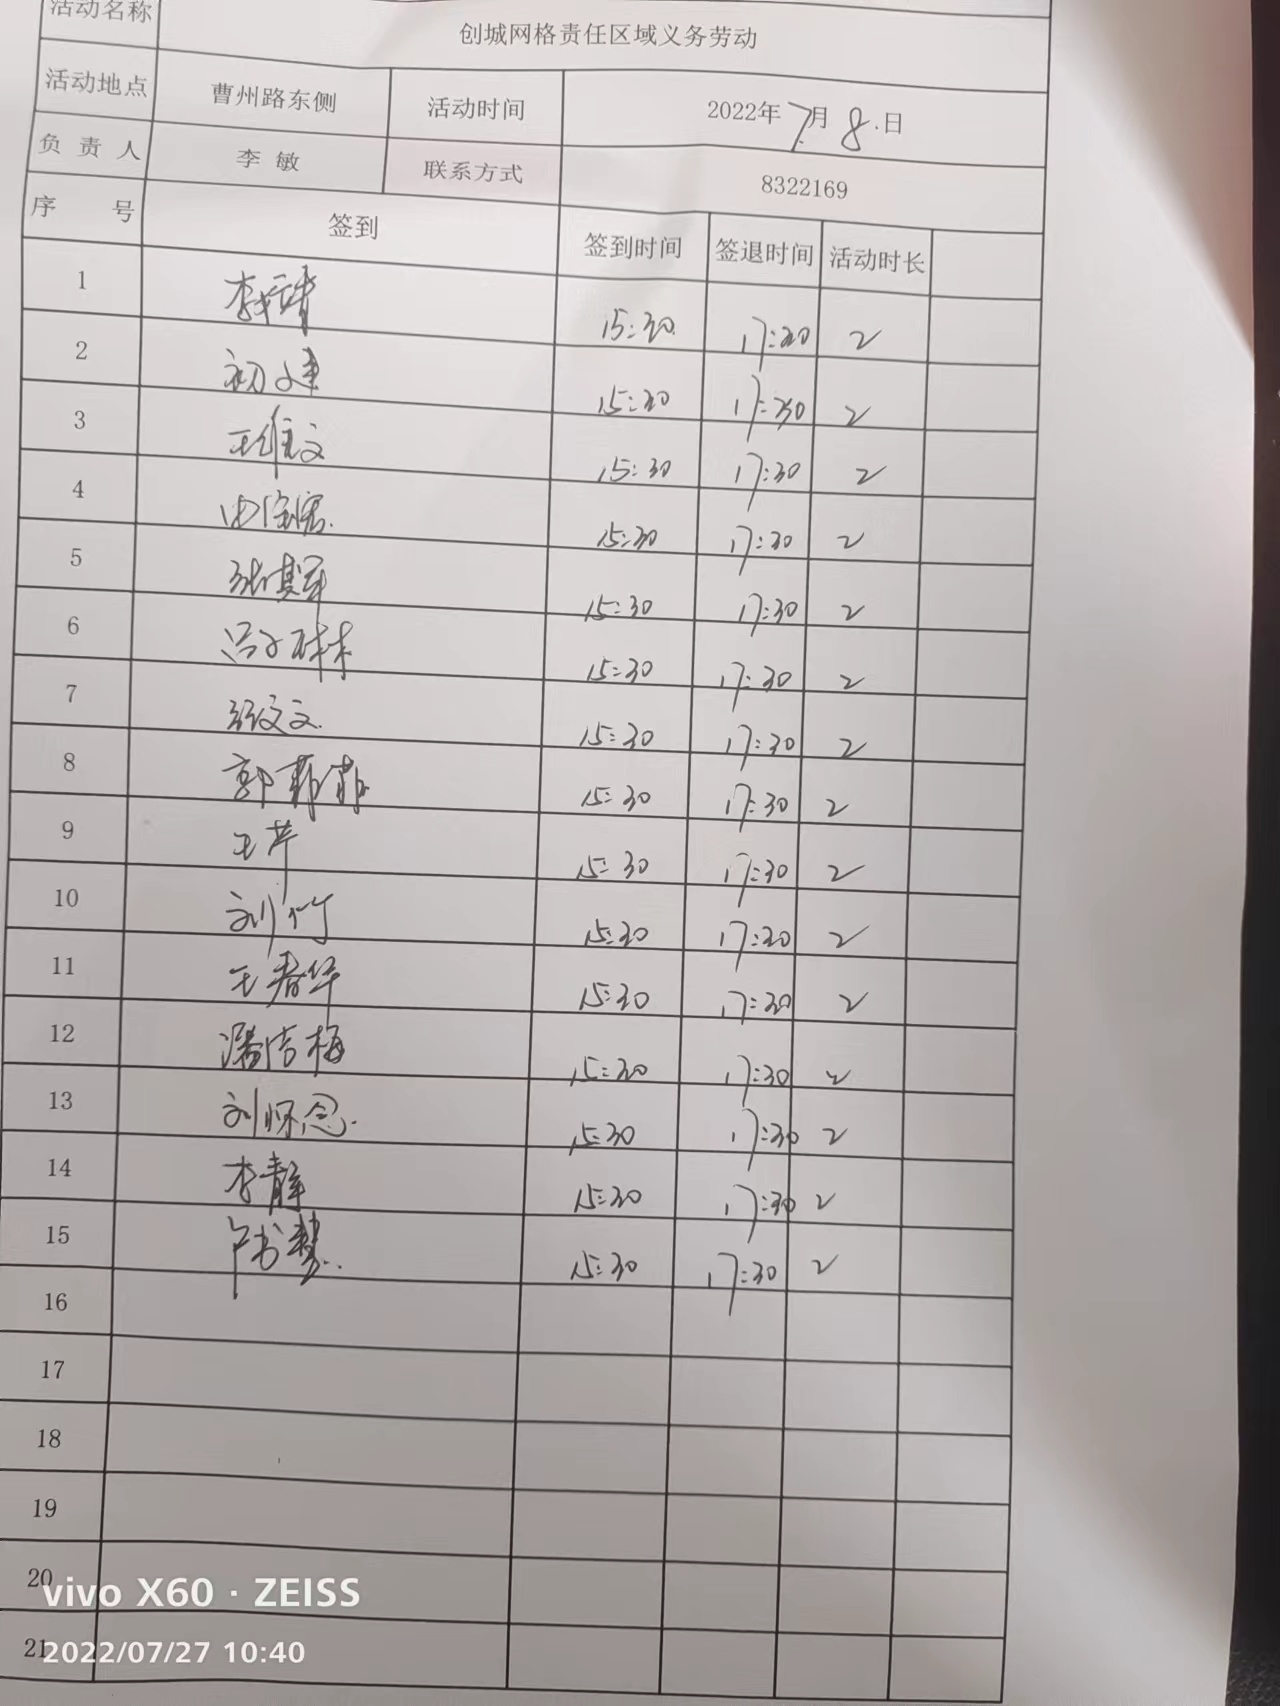 活动名称 创城网格责任区域义务劳动
活动地点 曹州路东侧 活动时间 2022年7月8日
负责人 李敏 联系方式 8322169
序号 签到 签到时间 签退时间 活动时长
1 15:30 17:30 2
2 初建 15:30 17:30 2
3 王维文 15:30 17:30 2
4 15:30 17:30 2
5 张其军 15:30 17:30 2
6 15:30 17:30 2
7 张文文 15:30 17:30 2
8 郭菲菲 15:30 17:30 2
9 王芹 15:30 17:30 2
10 刘竹 15:30 17:30 2
11 王春华 15:30 17:30 2
12 潘洁梅 15:30 17:30 2
13 刘怀念 15:30 17:30 2
14 李静 15:30 17:30 2
15 15:30 17:30 2
16
17
18
19
20
21
vivo X60 · ZEISS
2022/07/27 10:40